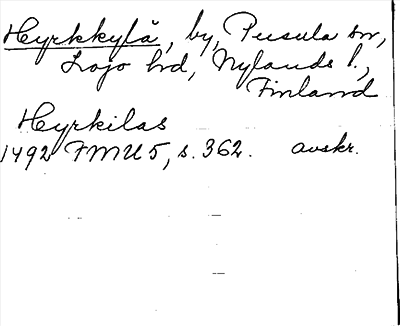 Hyrkkylä, by, Pusula sn,
Lojo hd, Nylands l.,
Finland
Hyrkilas
1492 FMU 5, s. 362. avskr.